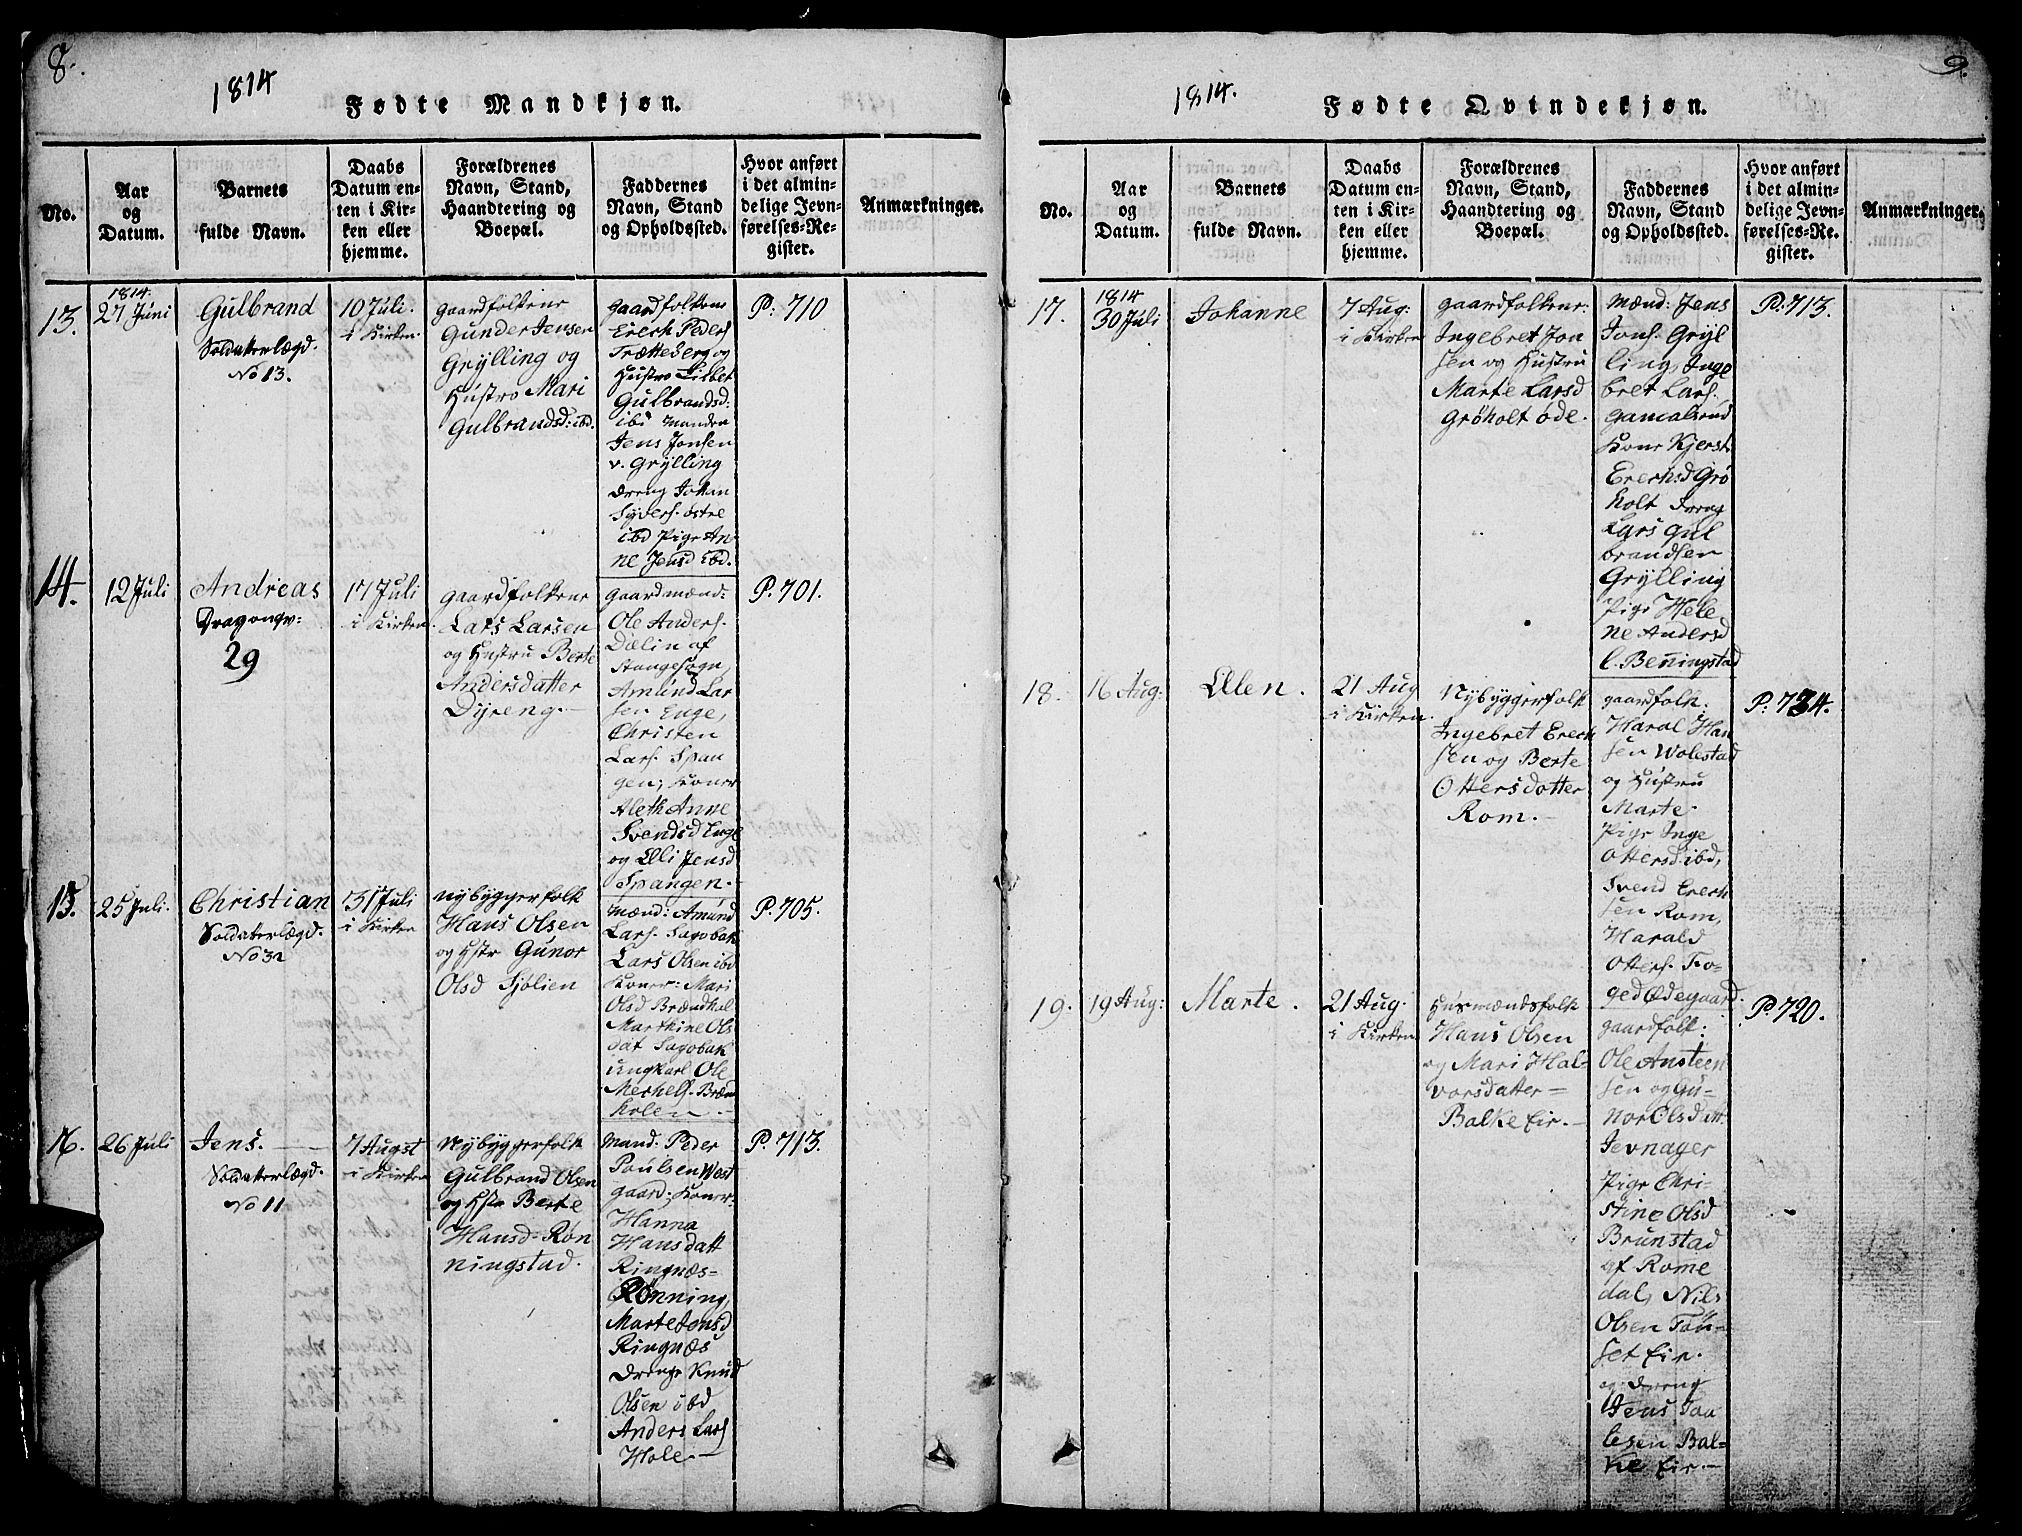 8.
1814
Fødte Mandkjøn.
No.
Aar
og
Datum.
Barnets
fulde Navn.
Daabs
Datum en-
ten i Kir-
ken eller
hjemme.
Forældrenes
Navn, Stand,
Haandtering og
Boepæl.
Faddernes
Navn, Stand
og Opholdssted.
Hvor anført
i det almin-
delige Jevn-
førelses-Re-
gister.
Anmærkninger.
13.
1814.
27 Juni
Gulbrand
Soldaterlægd.
No 13.
10 Juli.
i Kirken.
gaardfolkene
Gunder Jensen
Grylling og
Hustro Mari
Gulbrandsd: ibd.
gaardfolkene
Erech Peders
Trætteberg og
Hustro Lisbet
Gulbrandsd:
ibd
Jens Jonsen
v. Grylling
Dreng Johan
østre
ibd Pige An-
ne Jensd ibd.
P: 710
14.
12 Juli
Andreas
Dragonqv:
29
17 Juli
i Kirken.
gaardfolkene
Lars Larsen
og Hustru Berte
Andersdatter
Dyreng.-
gaardmænd:
Ole Anders.
Dælin af
Stangesogn,
Amund Lar
sen Enge,
Christen
Lars. Span
gen; Koner
Aleth Anne
Svendsd Enge
og Elli Jensd
Spangen.-
P. 701.
15.
25 Juli.
Christian
Soldaterlægd.
No 32
31 Juli
i Kirken
Nybyggerfolk
Hans Olsen
og Hstr Gunor
Olsd Sjølien
Mænd: Amund
Lars. Sagobak
Lars Olsen ibd
Koner: Mari
Olsd Brændhol
Marthine Ols
dat Sagobak
ungkarl Ole
Merhels. Bræn
holen.-
P. 705.
16.
26 Juli
Jens.
Soldaterlægd.
No 11
7 Augst
i Kirken
Nybyggerfolk
Gulbrand Olsen
og Hstr Berte
Hansd- Røn
ningstad.
Mænd: Peder
Poulsen West
gaard; Koner:
Hanna
Hansdatt
Ringnæs-
Rønning,
Marte Jensd
Ringnæs
Drenge Knud
Olsen ibd
Anders Lars
Hole.-
P. 713.
9.
1814.
Fødte Qvindekjøn.
No.
Aar
og
Datum.
Barnets
fulde Navn.
Daabs
Datum en-
ten i Kir-
ken eller
hjemme.
Forældrenes
Navn, Stand,
Haandtering og
Boepæl.
Faddernes
Navn, Stand
og Opholdssted.
Hvor anført
i det almin-
delige Jevn-
førelses-Re-
gister.
Anmærkninger.
17.
1814
30 Juli
Johanne
7 Aug:
i Kirken
gaardfolkene:
Ingebret Jon
sen og Hustru
Marte Larsd
Grøholt øde.
Mænd: Jens
Jons. Gryl
ling, Inge
bret Lars.
Gamalsrud
Kone Kjersti
Erechsd Grø
holt Dreng
Lars Gul
brandsen
Grylling
Pige Hele
ne Andersd
l. Benningstad
P: 713.
18.
16 Aug:
Ellen.
21 Aug
i Kirken.
Nybyggerfolk
Ingebret Erech
sen og Berte
Ottersdatter
Rom.-
gaardfolk:
Haral Han
sen Wolestad
og Hustru
Marte.
Pige Inge
Ottersd ibd,
Svend Erech
sen Rom,
Harald
Otters. Fo-
ged Ødegaard.
P: 734.
19.
19 Aug:
Marte.
21 Aug.
i Kirken
Husmændsfolk
Hans Olsen
og Mari Hal-
vorsdatter=
Balke Eir.-
gaardfolk:
Ole Ansteen
sen og Gu-
nor Olsdatt.
Jevnager
Pige Chri-
stine Olsd
Brunstad
af Rome
dal, Nils
Olsen Tøn-
set Eir.
og Dreng
Jens Joa
lesen Bal-
ke Eir.-
P. 720.